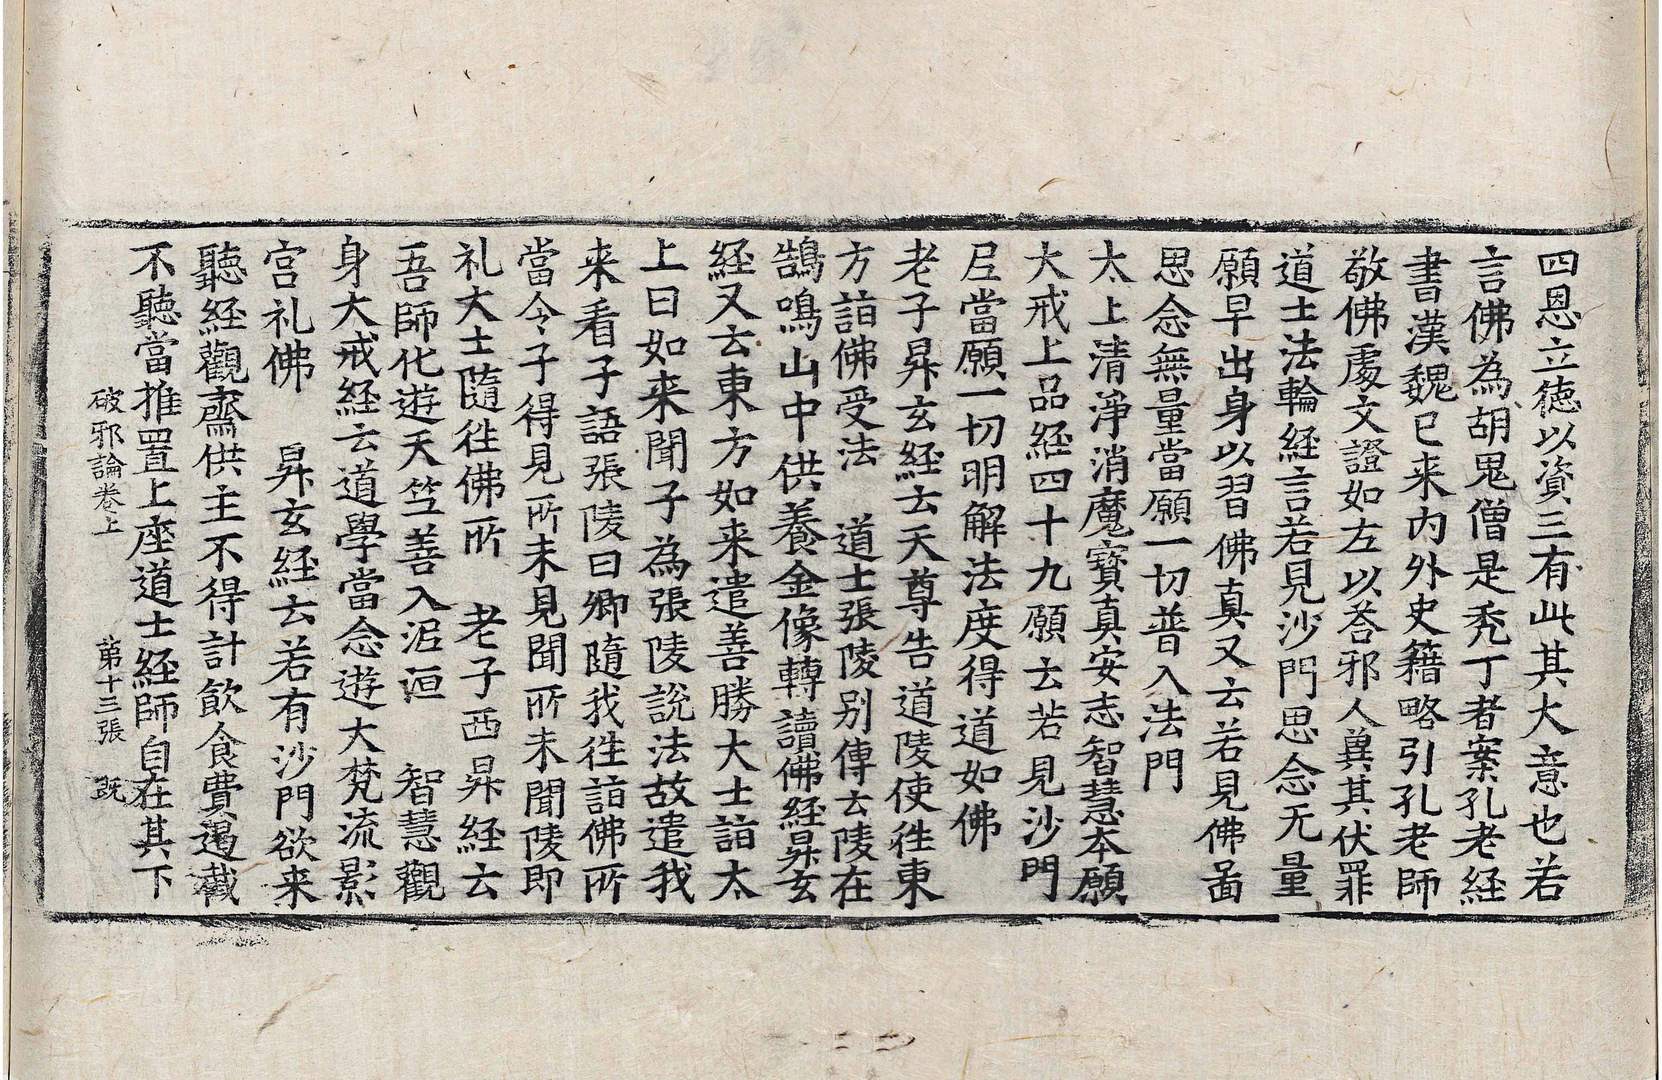 四恩立徳以資三有此其大意也若
言佛為胡鬼僧是秃丁者案孔老経
書漢魏已来内外史籍略引孔老師
敬佛處文證如左以荅邪人冀其伏罪
道士法輪経言若見沙門思念无量
願早出身以習佛真又云若見佛啚
思念無量當願一切普入法門
太上清淨消魔寳真安志智慧本願
大戒上品経四十九願云若見沙門
尼當願一切明解法度得道如佛
老子昇玄経云天尊告道陵使往東
方詣佛受法　道士張陵别傳云陵在
鵠鳴山中供養金像轉讀佛経昇玄
経又云東方如来遣善勝大士詣太
上曰如来聞子為張陵說法故遣我
来看子語張陵曰卿隨我往詣佛所
當令子得見所未見聞所未聞陵即
礼大士隨往佛所　老子西昇経云
吾師化遊天竺善入泥洹　智慧觀
身大戒経云道學當念遊大梵流影
宫礼佛　昇玄経云若有沙門欲来
聽経觀齋供主不得計飲食費遏截
不聽當推置上座道士経師自在其下
破邪論卷上　第十三張　既